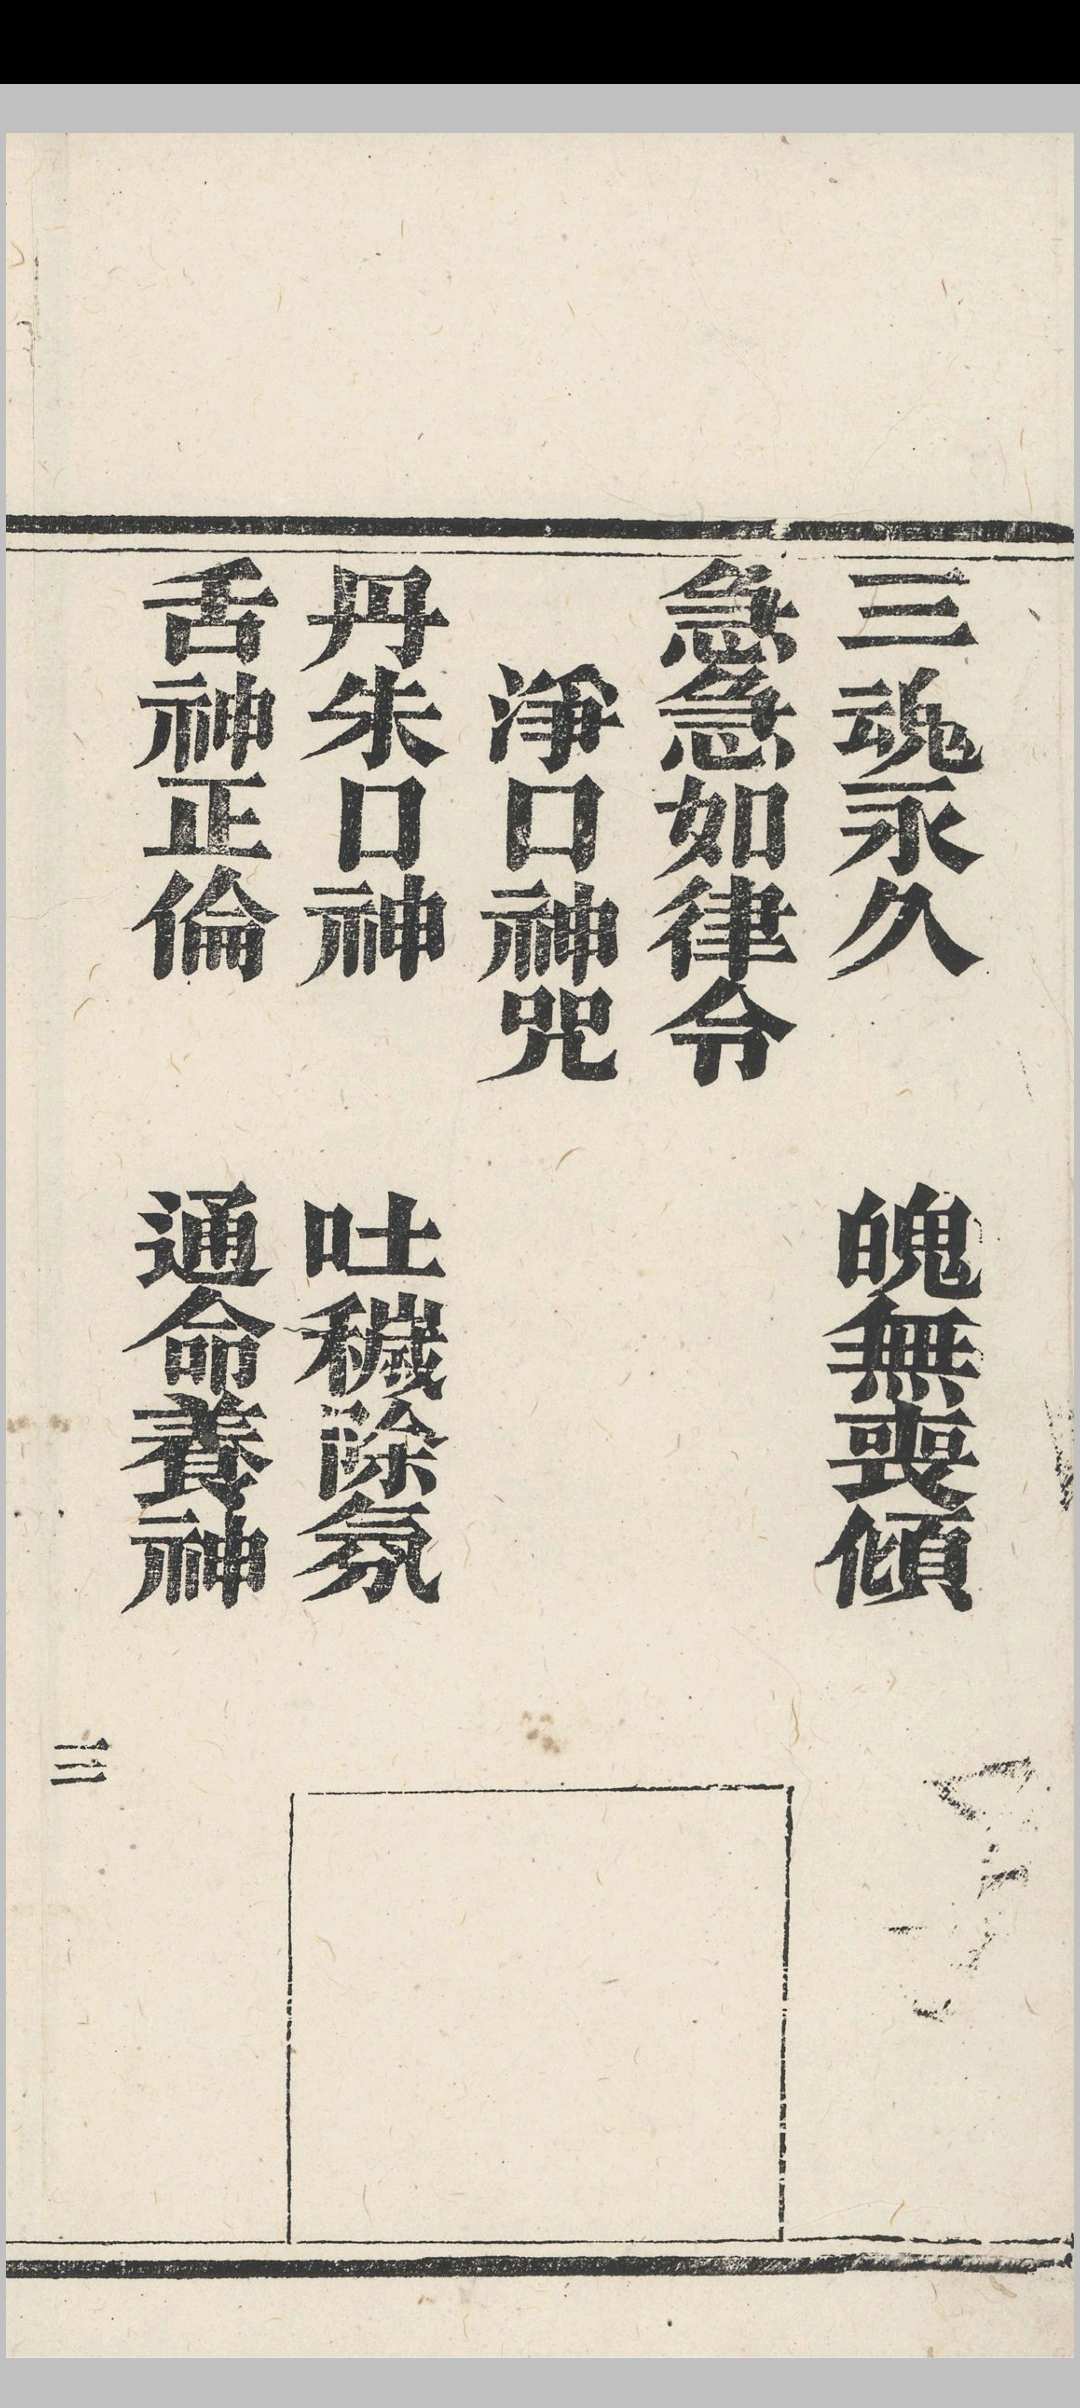 三魂永久　魄無喪傾
急急如律令
淨口神咒
丹朱口神　吐穢除氛
舌神正倫　通命養神
三